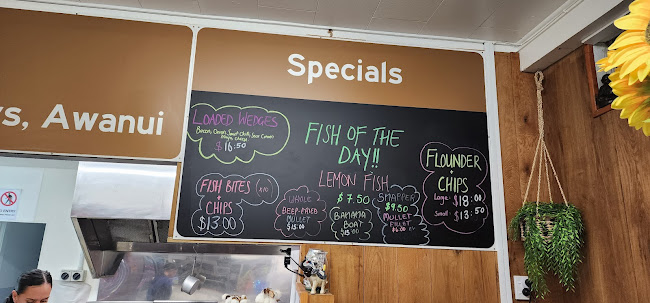 s, Awanui
Specials
LOADED WEDGES
Bacon, Onion, Sweet Chilli, Sour Cream
$16:50
FISH OF THE
DAY!!
LEMON FISH
$7.50
FISH BITES x10
+
CHIPS
$13.00
WHOLE
DEEP-FRIED
MULLET
$15:00
BANANA
BOAT
$15:00
SNAPPER
$9.50
MULLET
FILLET
$6:00
FLOUNDER
+
CHIPS
Large: $18:00
Small: $13:50